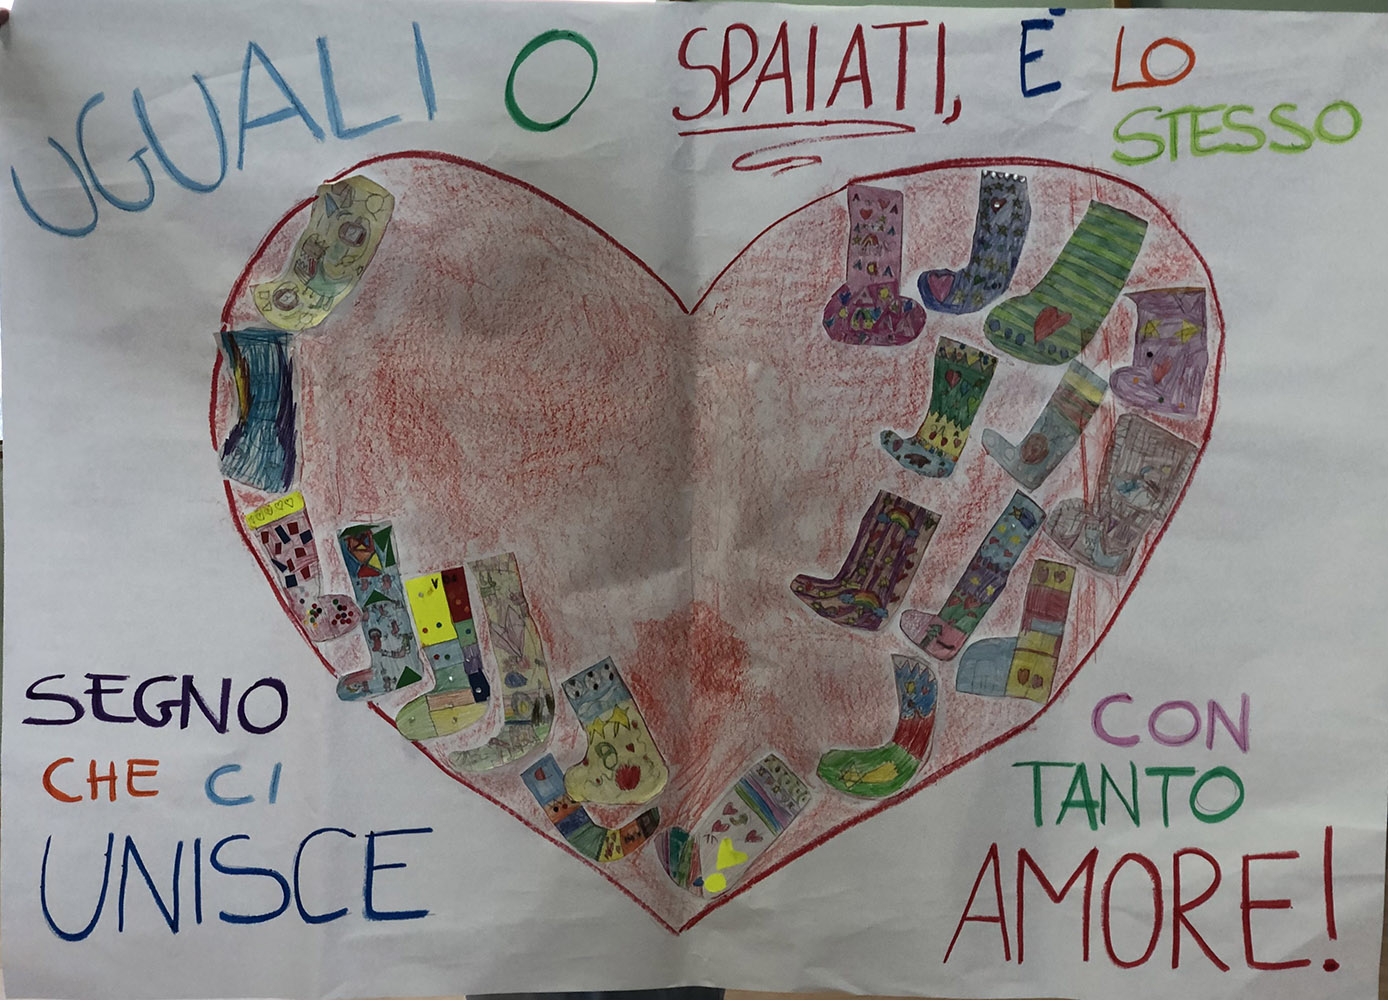 UGUALI O SPAIATI, È LO
STESSO
SEGNO
CHE CI
UNISCE
CON
TANTO
AMORE!